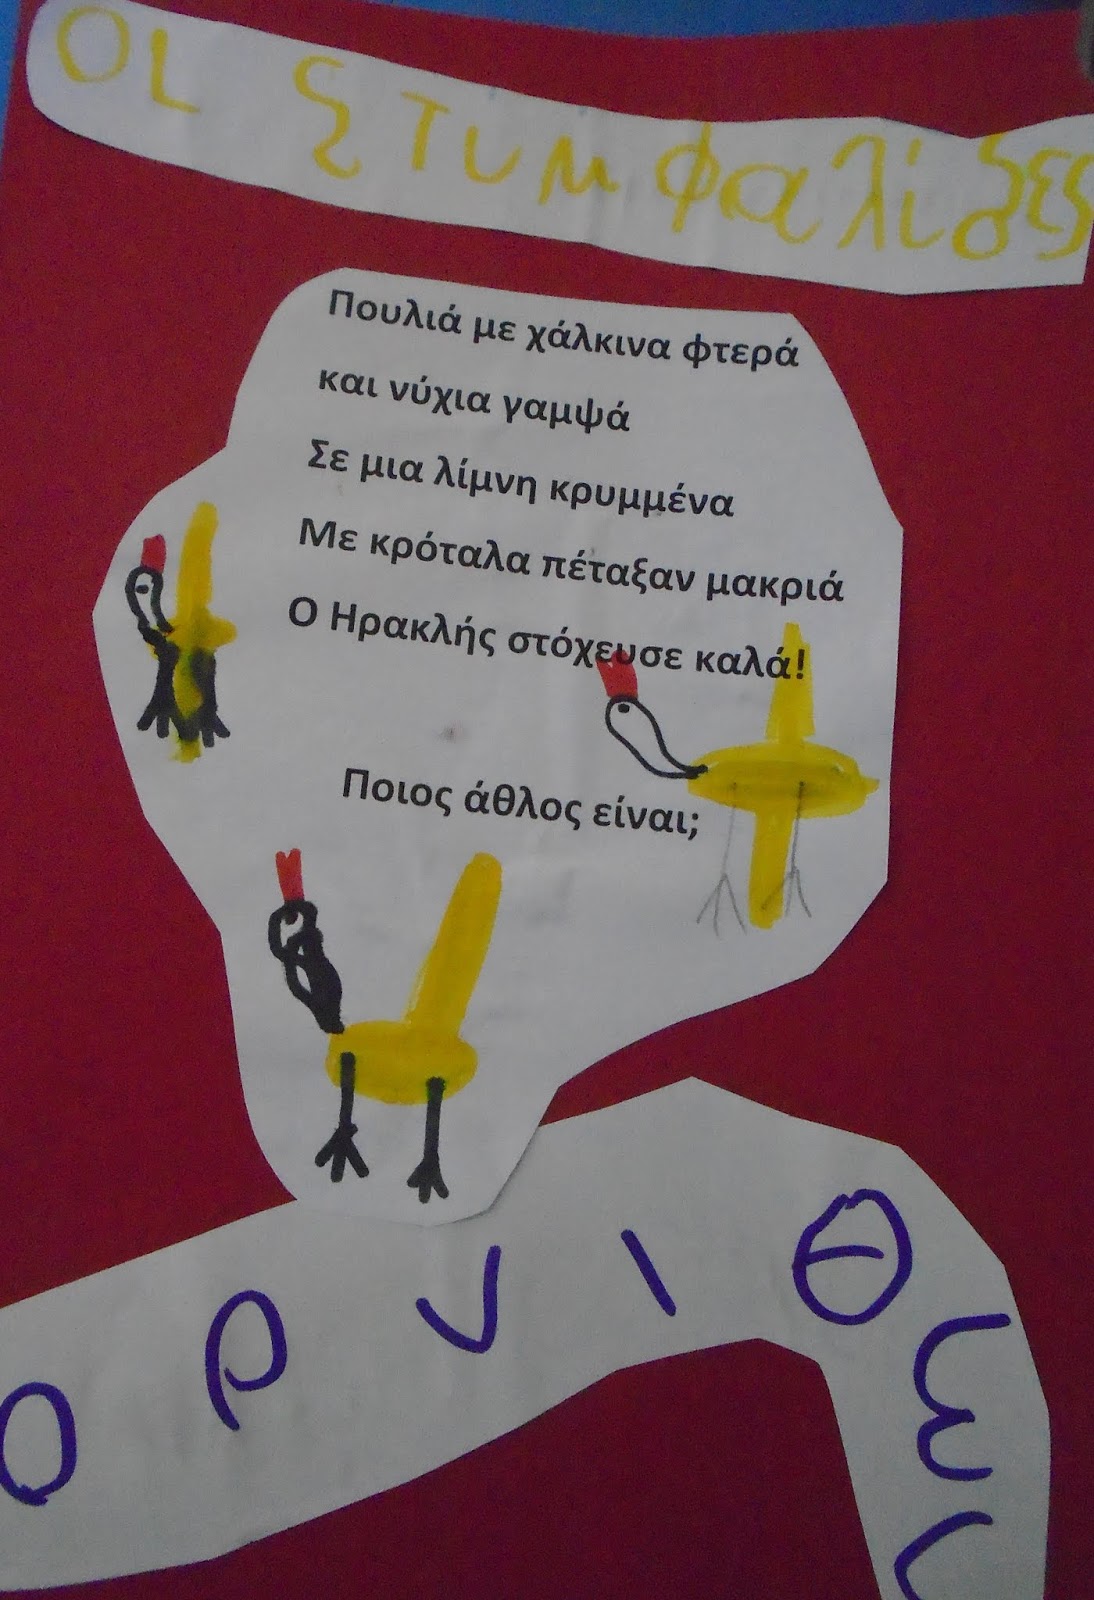 οι ςτυμφαλίδες
Πουλιά με χάλκινα φτερά
και νύχια γαμψά
Σε μια λίμνη κρυμμένα
Με κρόταλα πέταξαν μακριά
Ο Ηρακλής στόχευσε καλά!
Ποιος άθλος είναι;
ορνιθες